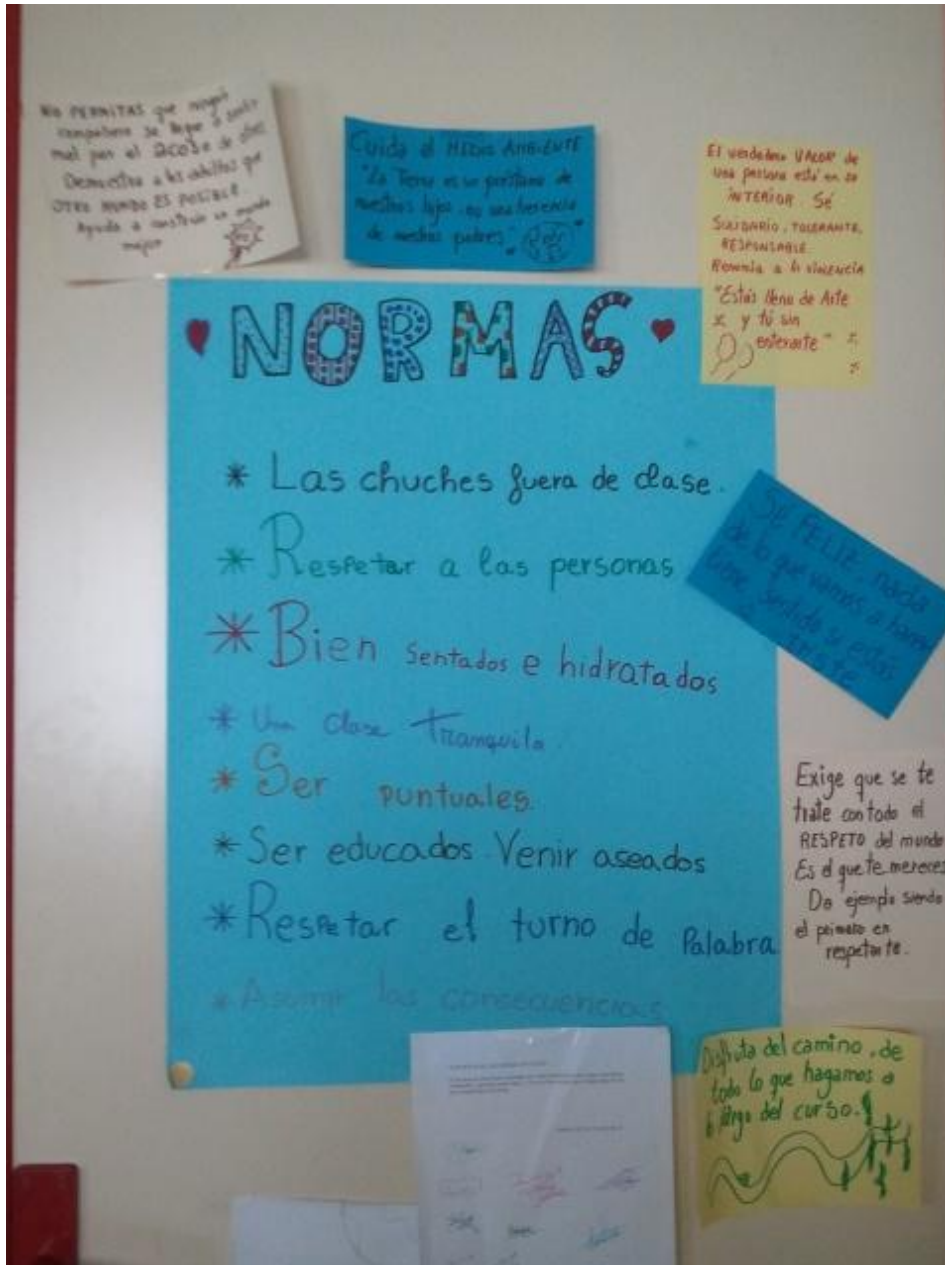 NO PERMITAS que ningún
compañero se llegue a sentir
mal por el acoso de otros
Demuestra a los adultos que
OTRO MUNDO ES POSIBLE
Ayuda a construir un mundo
mejor
Cuida el MEDIO AMBIENTE
"La Tierra es un préstamo de
nuestros hijos, no una herencia
de nuestros padres"
El verdadero VALOR de
una persona está en su
INTERIOR. Sé
SOLIDARIO, TOLERANTE,
RESPONSABLE.
Renuncia a la VIOLENCIA
"Estás lleno de Arte
y tú sin
enterarte"
NORMAS
* Las chuches fuera de clase.
* Respetar a las personas
* Bien sentados e hidratados
* Una clase tranquila.
* Ser puntuales.
* Ser educados. Venir aseados
* Respetar el turno de Palabra
* Asumir las consecuencias
SÉ FELIZ, nada
de lo que vamos a hacer
tiene sentido si estás
triste
Exige que se te
trate con todo el
RESPETO del mundo
Es el que te mereces
Da ejemplo siendo
el primero en
respetarte.
Disfruta del camino, de
todo lo que hagamos a
lo largo del curso.